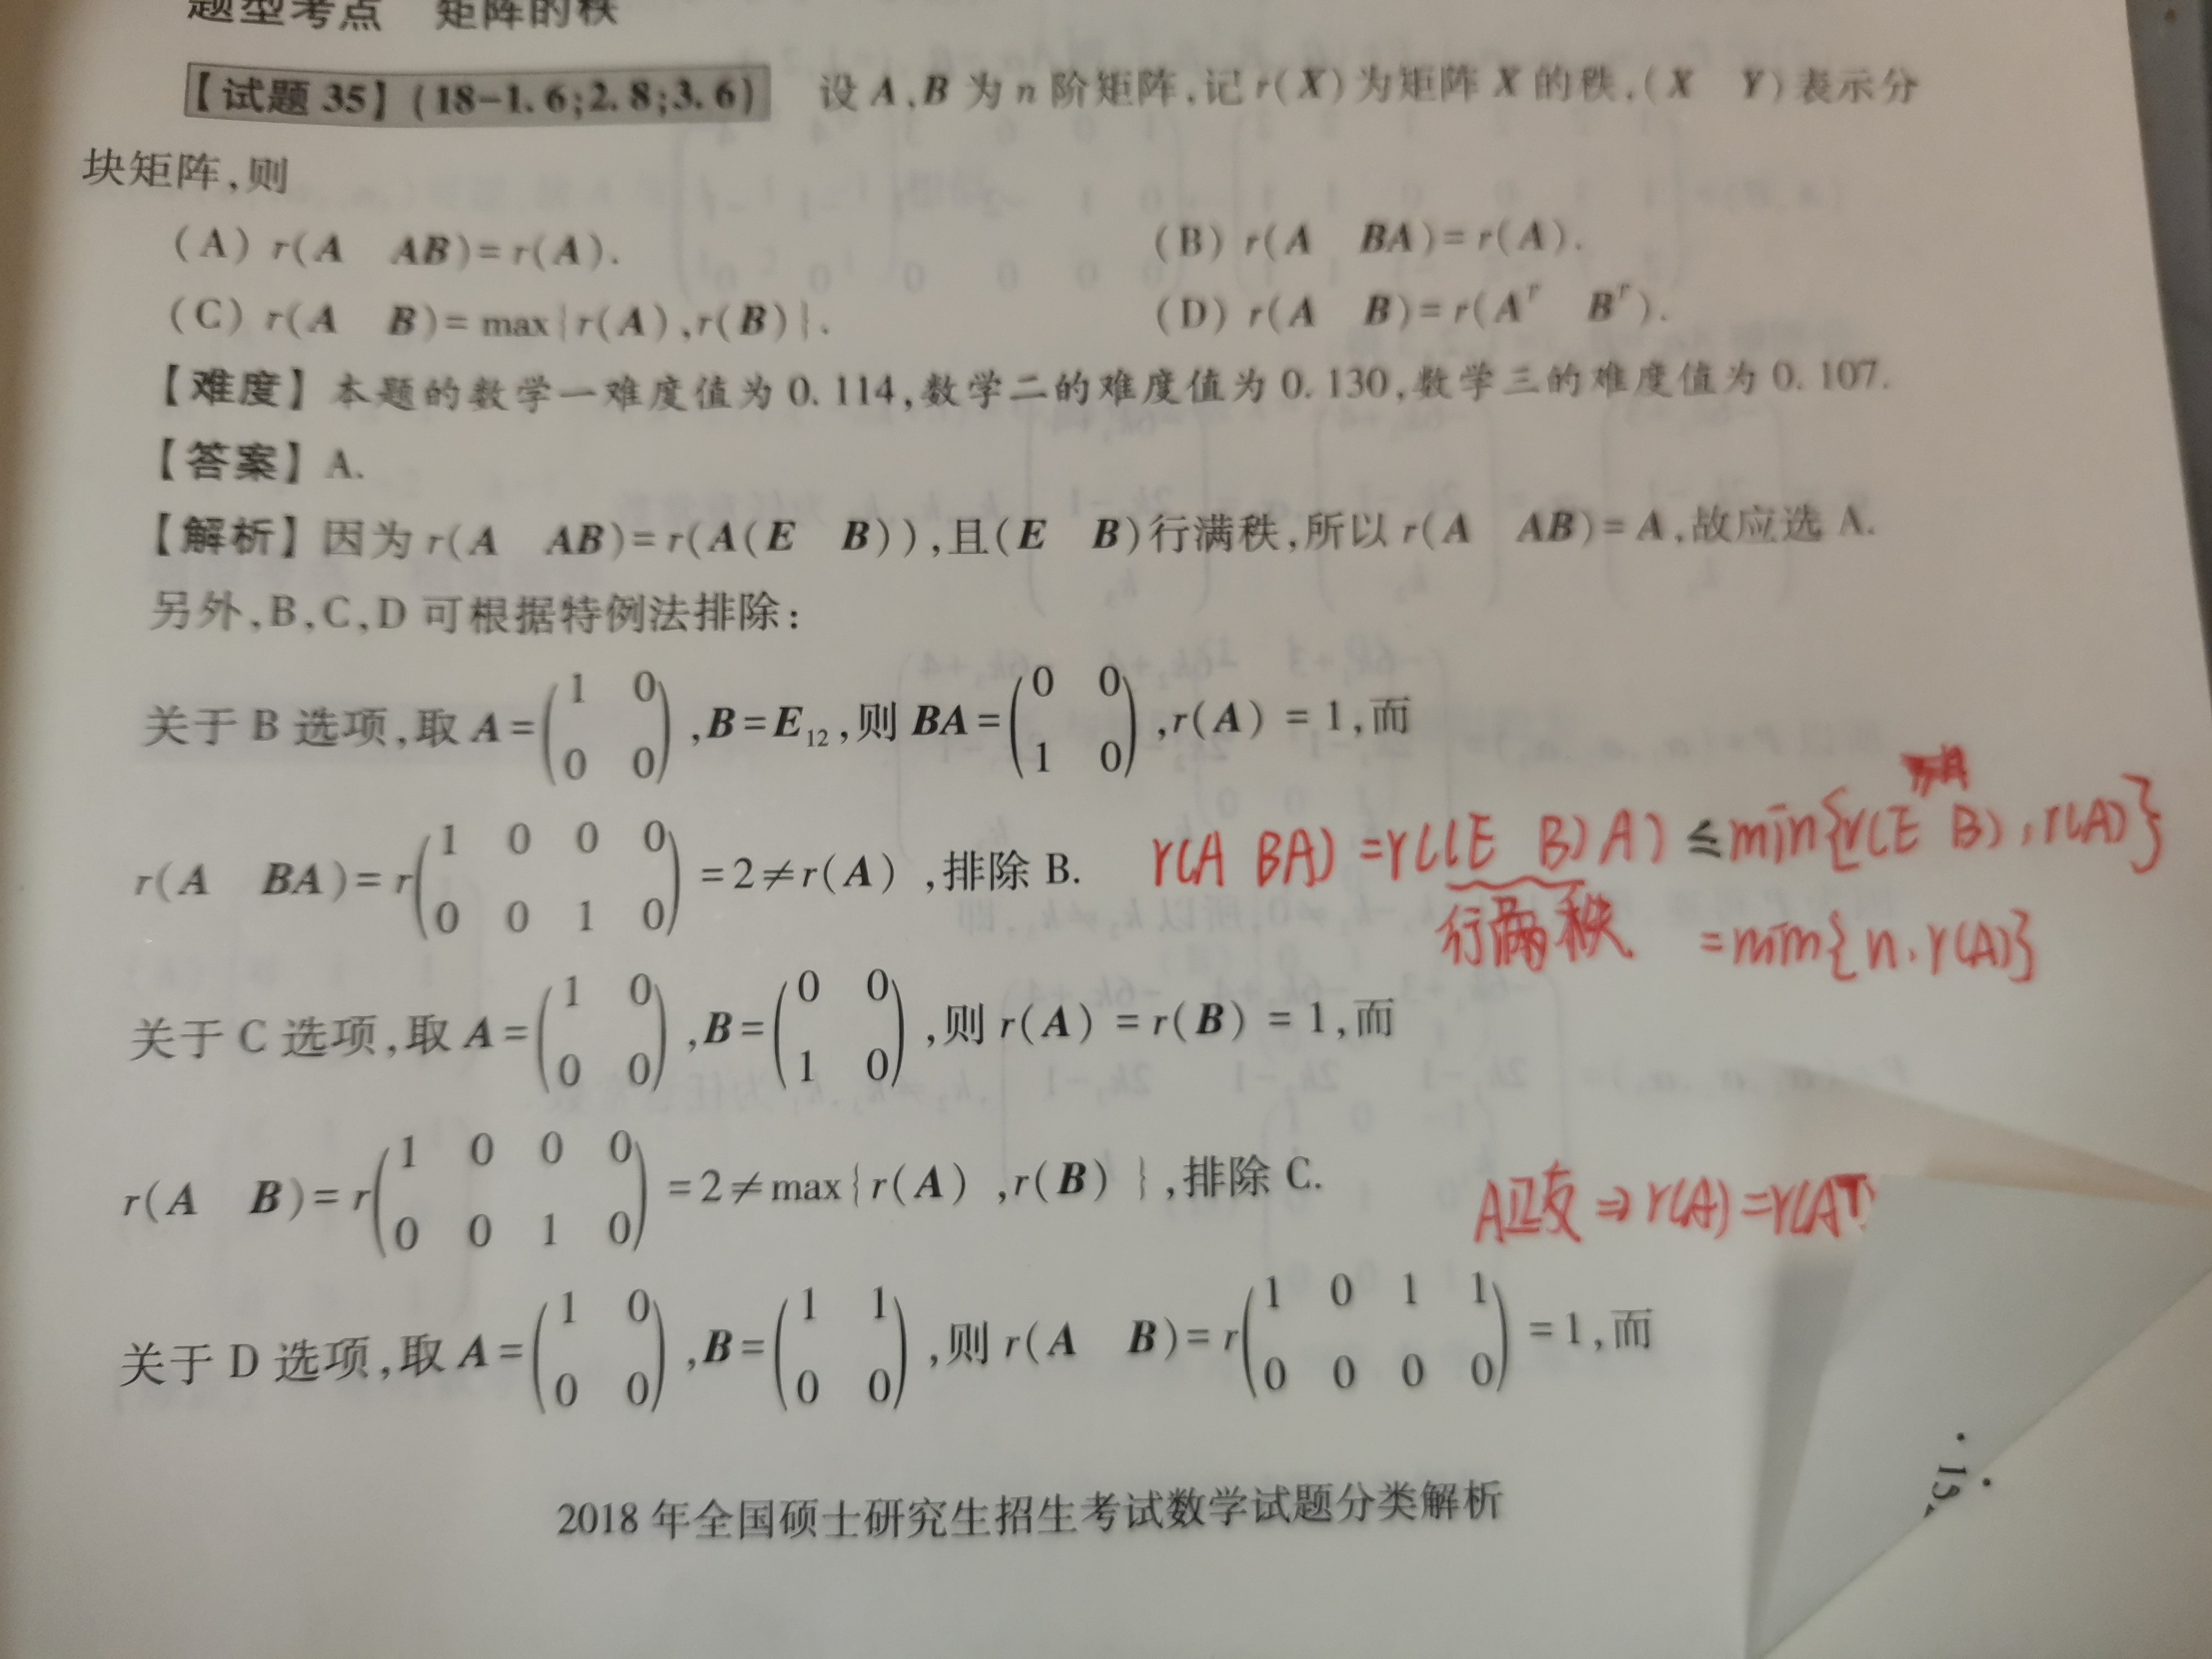 题型考点 矩阵的秩
【试题 35】(18-1.6;2.8;3.6) 设 A,B 为 n 阶矩阵,记 r(X)为矩阵 X 的秩,(X Y)表示分
块矩阵,则
(A) r(A AB)=r(A).
(B) r(A BA)=r(A).
(C) r(A B)=max{r(A),r(B)}.
(D) r(A B)=r(Aᵀ Bᵀ).
【难度】本题的数学一难度值为 0.114,数学二的难度值为 0.130,数学三的难度值为 0.107.
【答案】A.
【解析】因为 r(A AB)=r(A(E B)),且(E B)行满秩,所以 r(A AB)=A,故应选 A.
另外,B,C,D 可根据特例法排除:
关于 B 选项,取 A=(1 0; 0 0),B=E₁₂,则 BA=(0 0; 1 0),r(A)=1,而
r(A BA)=r(1 0 0 0; 0 0 1 0)=2≠r(A),排除 B.
r(A BA)=r((E B)A)≤min{r(E B),r(A)}
行满秩 =min{n,r(A)}
关于 C 选项,取 A=(1 0; 0 0),B=(0 0; 1 0),则 r(A)=r(B)=1,而
r(A B)=r(1 0 0 0; 0 0 1 0)=2≠max{r(A),r(B)},排除 C.
⇒r(A)=r(AT
关于 D 选项,取 A=(1 0; 0 0),B=(1 1; 0 0),则 r(A B)=r(1 0 1 1; 0 0 0 0)=1,而
2018 年全国硕士研究生招生考试数学试题分类解析